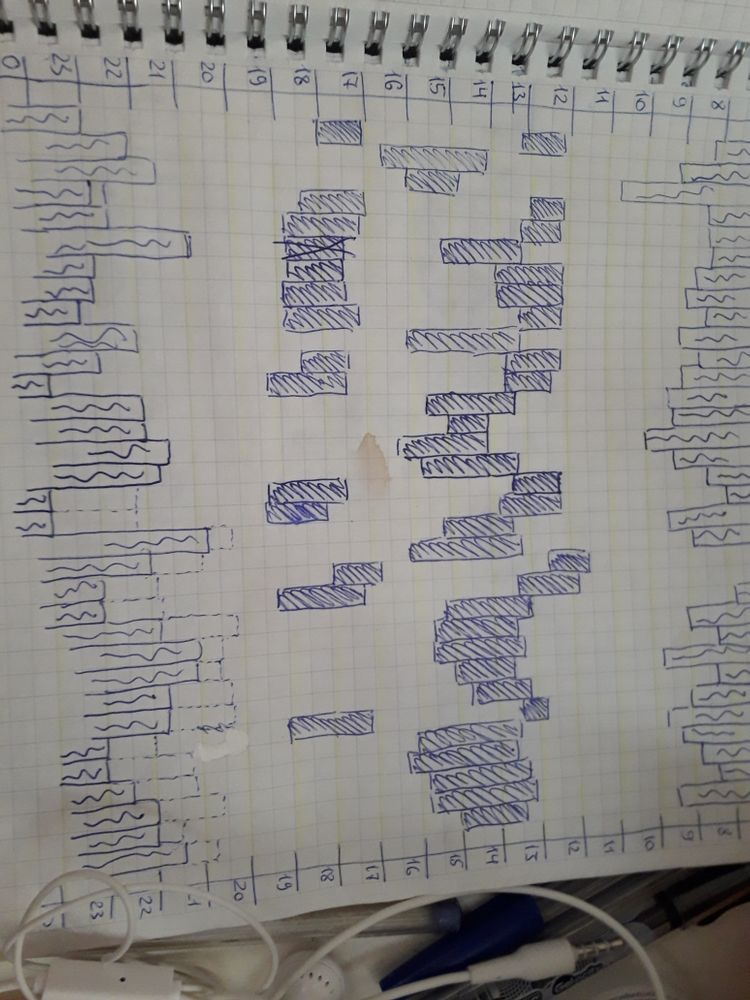 0 23 22 21 20 19 18 17 16 15 14 13 12 11 10 9 8
23 22 20 19 18 17 16 15 14 13 12 11 10 9 8